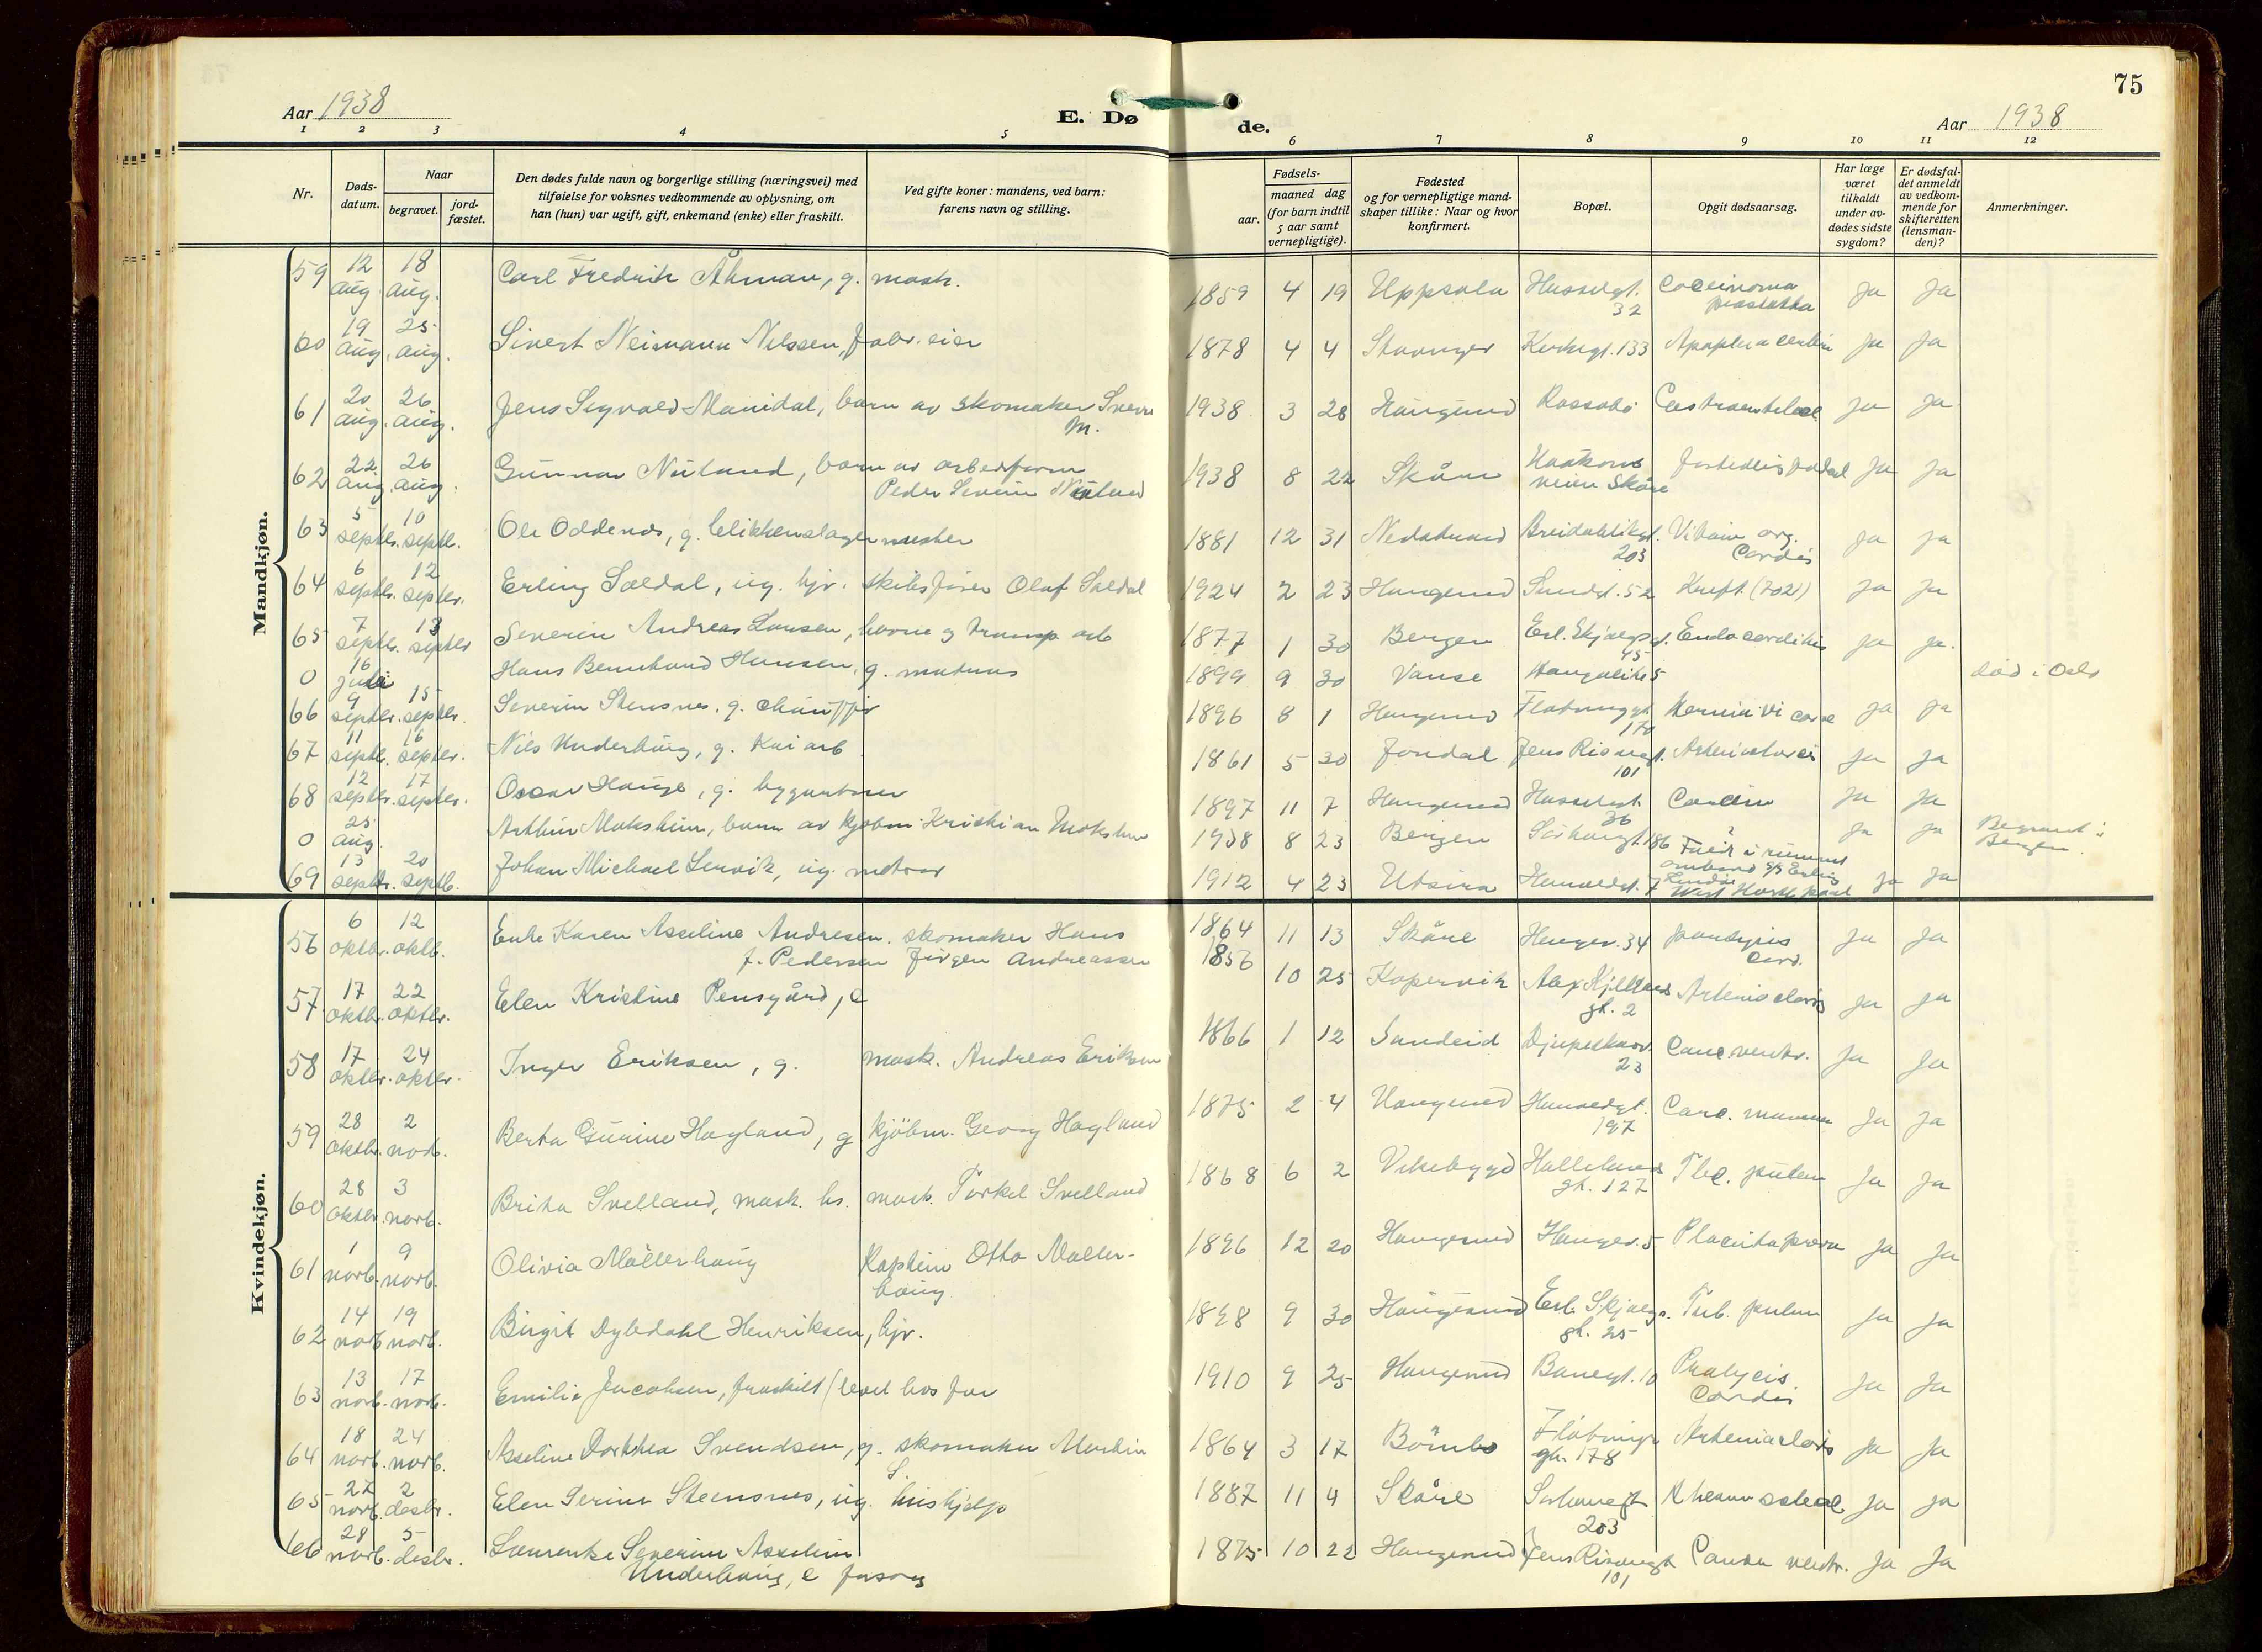 75
Aar 1938
E. Dø
de.
Aar 1938
1 2 3 4 5 6 7 8 9 10 11 12
Nr.
Døds-
datum.
Naar
begravet.
jord-
fæstet.
Den dødes fulde navn og borgerlige stilling (næringsvei) med
tilføielse for voksnes vedkommende av oplysning, om
han (hun) var ugift, gift, enkemand (enke) eller fraskilt.
Ved gifte koner: mandens, ved barn:
farens navn og stilling.
Fødsels-
aar.
maaned dag
(for barn indtil
5 aar samt
vernepligtige).
Fødested
og for vernepligtige mand-
skaper tillike: Naar og hvor
konfirmert.
Bopæl.
Opgit dødsaarsag.
Har læge
været
tilkaldt
under av-
dødes sidste
sygdom?
Er dødsfal-
det anmeldt
av vedkom-
mende for
skifteretten
(lensman-
den)?
Anmerkninger.
Mandkjøn.
59 12 aug. 18 aug. Carl Fredrik Åhman, g. mask. 1859 4 19 Uppsala Hasselgt. 32 prostatta Ja Ja
60 19 aug. 25 aug. Sivert Neimann Nilssen, fabr. eier 1878 4 4 Stavanger Kirkegt. 133 Ja Ja
61 20 aug. 26 aug. Jens Sigvald Manidal, barn av skomaker Sverre M. 1938 3 28 Haugesund Rossabø Ja Ja
62 22. aug. 26 aug. Gunnar Nutand, barn av arbeidsform Peder Severin 1938 8 22 Skåre Haakons veien Skåre Ja Ja
63 5 septbr. 10 septb. Ole Oddenes, g. blikkenslager mester 1881 12 31 Nedstrand Breidablikgt. 203 Vitium org. Cordis Ja Ja
64 6 septbr. 12 septbr. Erling Sældal, ug. hjv. skibsfører Olaf Sældal 1924 2 23 Haugesund Sundgt. 52 Kreft. Ja Ja
65 7 septbr. 13 septbr Severin Andreas Larsen, havne g transp. arb 1877 1 30 Bergen Erl. Skjalgs gt. 45 Endocarditis Ja Ja.
0 16 juli Hans Bernhard Hansen, g. matros 1899 9 30 Vanse Haugalite 5 død i Oslo
66 9 septbr. 15 septbr. Severin Stensnes, g. chauffør 1896 8 1 Haugesund Flotmyrgt 170 Ja Ja
67 11 septb. 16 septbr. Nils Underhaug, g. Kai arb 1861 5 30 Jondal Jens Risøgt. 101 Ja Ja
68 12 septbr. 17 septbr. Oscar Hauge, g. 1897 11 7 Haugesund Hasselgt. 36 Ja Ja
0 25 aug. Arthur Moksheim, barn av kjøbm. Kristian Moksheim 1938 8 23 Bergen Sørhaugt. 186 ? Ja Ja Begravet i Bergen.
69 13 septbr. 20 septb. Johan Michael Lervik, ug. matros 1912 4 23 Utsira 7 Falt i rummet ombord Ja Ja
Kvindekjøn.
56 6 oktbr. 12 oktb. Enke Karen Asseline Andresen f. Pedersen skomaker Hans Jørgen Andreassen 1864 11 13 Skåre Haugev. 34 Cord. Ja Ja
57 17 oktbr. 22 oktbr. Elen Kristine Pensgård, e 1856 10 25 Kopervik Alex Kjellands gt. 2 Ja Ja
58 17 oktbr. 24 oktbr. Inger Eriksen, g. mask. Andreas Eriksen 1866 1 12 Sandeid 23 Canc. ventr. Ja Ja
59 28 oktbr. 2 nov. Berta Gurine Hagland, g kjøbm. Georg Hagland 1875 2 4 Haugesund 197 Canc. mamma Ja Ja
60 28 oktbr. 3 novb. Brita Svelland, mask. hs. mask. Torkel Svelland 1868 6 2 Vikebygd gt. 127 Tbc. pulm Ja Ja
61 1 novb. 9 novb. Olivia Møllerhaug Kaptein Otto Møller- haug 1896 12 20 Haugesund Haugev. 5 Ja Ja
62 14 novb 19 novb. Birgit Dybdahl Henriksen, hjv. 1898 9 30 Haugesund Erl. Skjalgs. gt. 25 Tub. pulm Ja Ja
63 13 novb. 17 novb. Emilie Jacobsen, fraskilt (levet hos far 1910 9 25 Haugesund Banegt. 10 Cordis Ja Ja
64 18 novb. 24 novb. Asseline Dorthea Svendsen, g. skomaker Martin S. 1864 3 17 Bømlo Flotmyr gt. 178 Ja Ja
65 27 novb. 2 desbr. Elen Serine Steensnes, ug. hushjelp 1887 11 4 Skåre Sørhaugt 203 Ja Ja
66 28 novb. 5 desbr. Laurentse Severine Asseline Underhaug, e forsorg 1875 10 22 Haugesund Jens Risøegt 101 Cancer ventr. Ja Ja